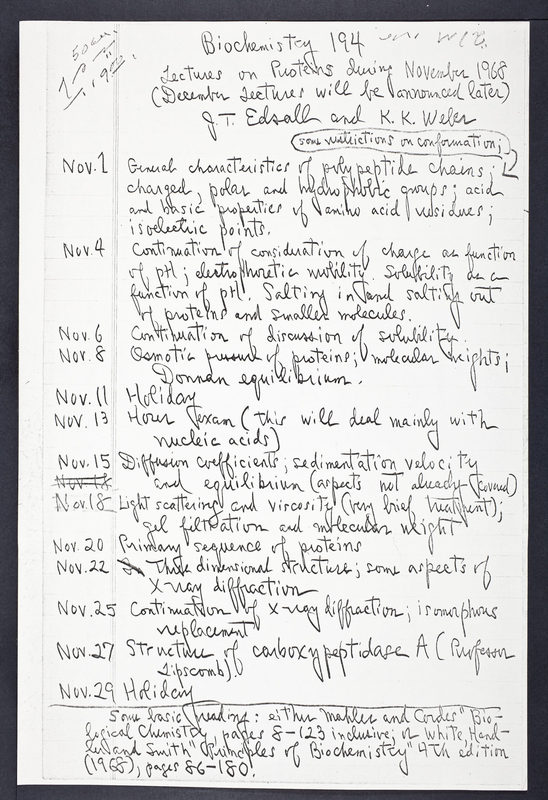 50 cm
Biochemistry 194
Lectures on Proteins during November 1968
(December lectures will be announced later)
J.T. Edsall and K.K. Weber
some restrictions on conformation;
Nov. 1 General characteristics of polypeptide chains;
charged, polar and hydrophobic groups; acid
and basic properties of amino acid residues;
isoelectric points.
Nov. 4 Continuation of consideration of charge as function
of pH; electrophoretic mobility. Solubility as a
function of pH. Salting in and salting out
of proteins and smaller molecules.
Nov. 6 Continuation of discussion of solubility.
Nov. 8 Osmotic pressure of proteins; molecular weights;
Donnan equilibrium.
Nov. 11 Holiday
Nov. 13 Hour exam (this will deal mainly with
nucleic acids)
Nov. 15 Diffusion coefficients; sedimentation velocity
Nov. 18 and equilibrium (aspects not already covered)
Nov. 18 Light scattering and viscosity (very brief treatment);
gel filtration and molecular weight
Nov. 20 Primary sequence of proteins
Nov. 22 Three dimensional structure; some aspects of
X-ray diffraction
Nov. 25 Continuation of X-ray diffraction; isomorphous
replacement
Nov. 27 Structure of carboxypeptidase A (Professor
Lipscomb).
Nov. 29 Holiday
Some basic reading: either Mahler and Cordes "Bio-
logical Chemistry, pages 8-123 inclusive; or White, Hand-
ler and Smith "Principles of Biochemistry" 4th edition
(1968), pages 86-180.